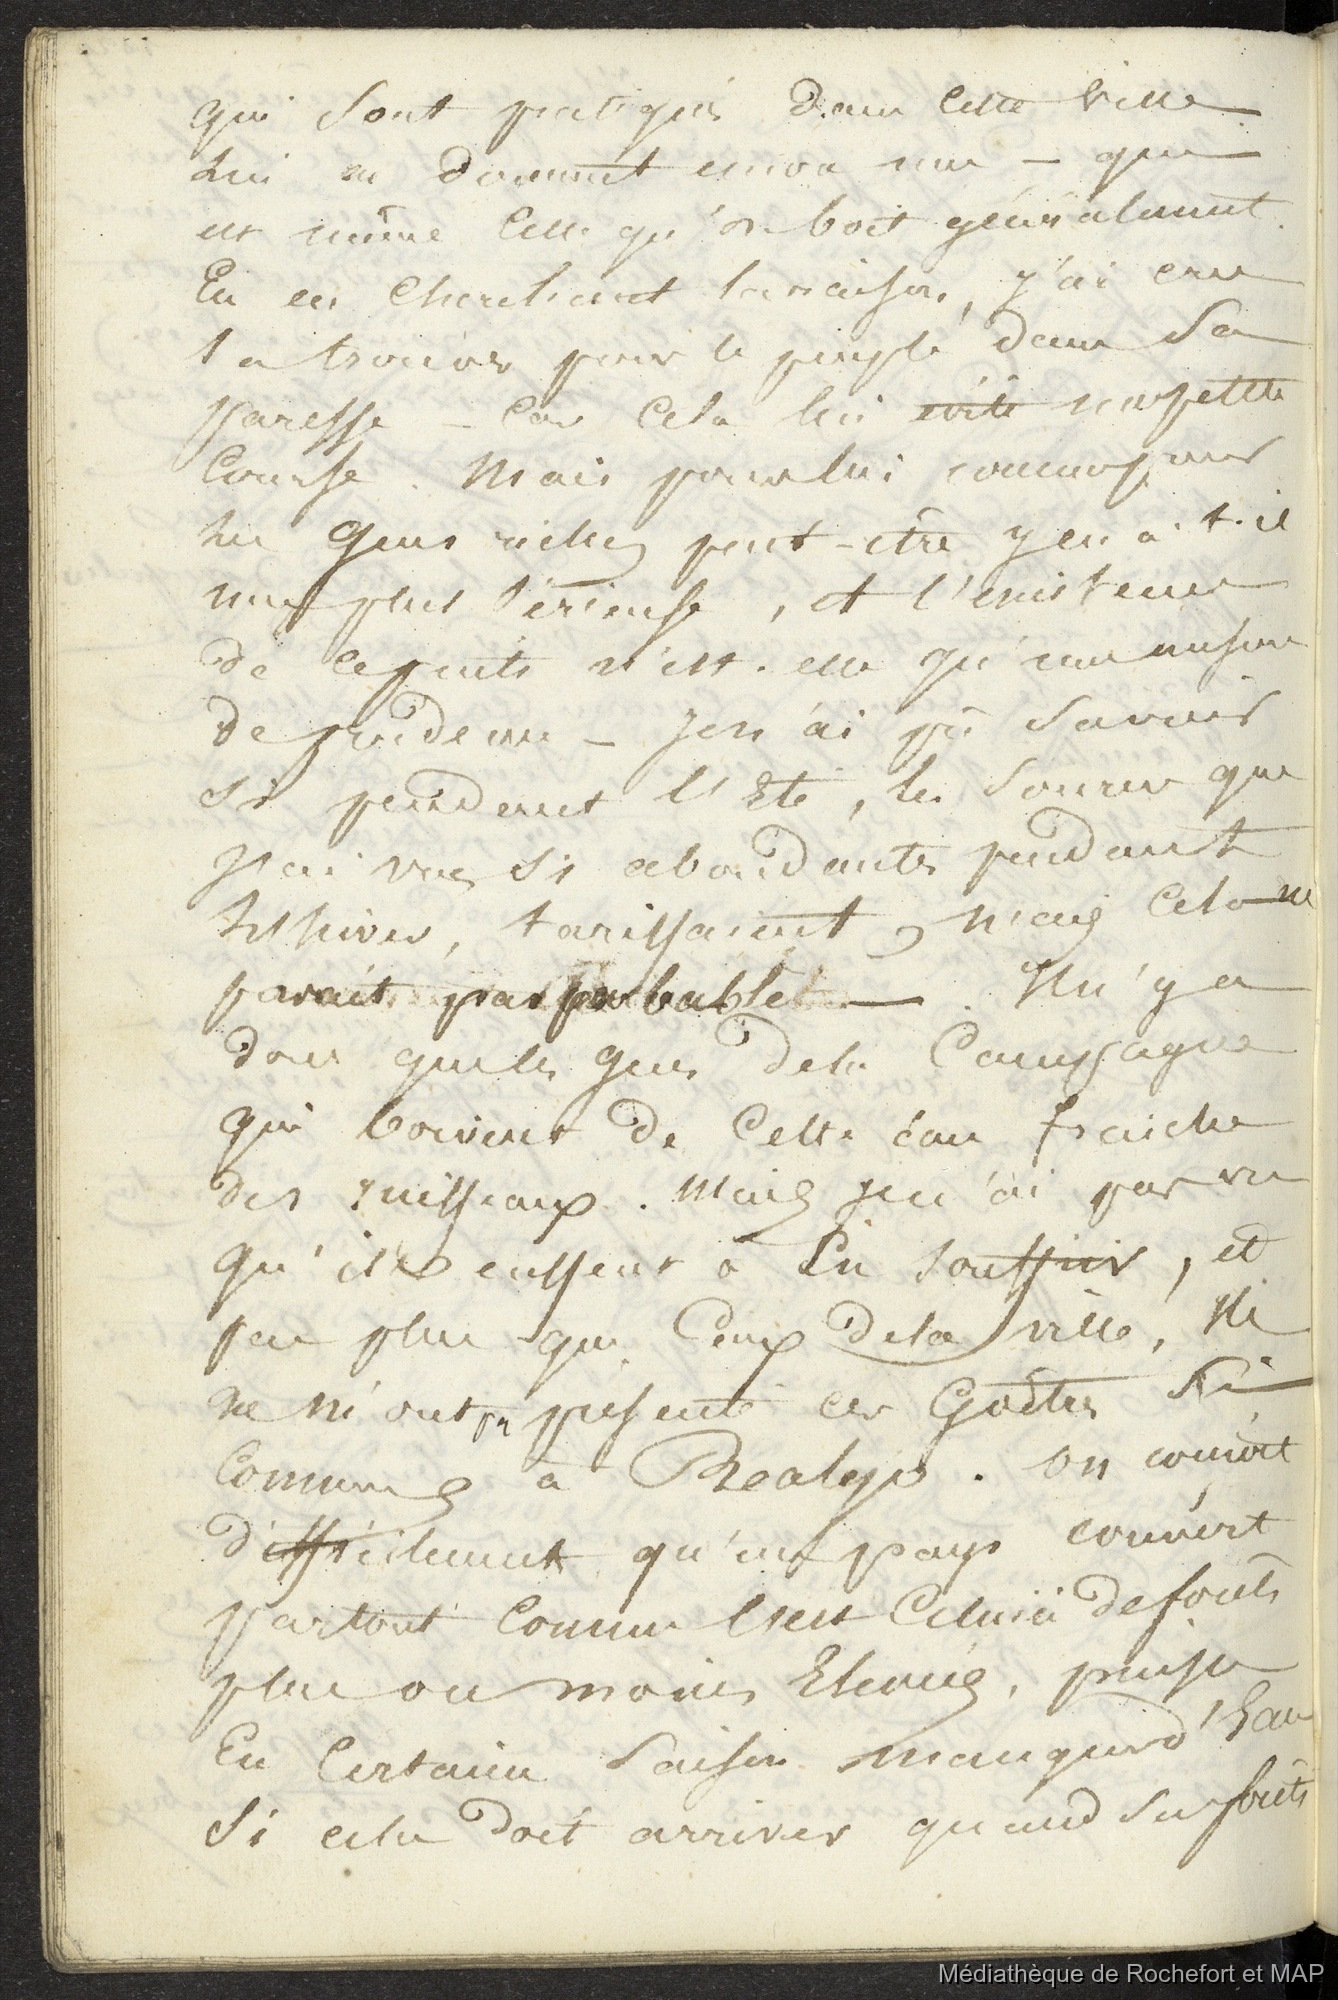 qui sont pratiqués dans cette ville
lui en donnent encore une - qui
est même celle qu'on boit généralement.
En en cherchant la raison, j'ai cru
la trouver pour le peuple dans sa
paresse - car cela lui évite une petite
course. Mais pour lui comme pour
les gens riches peut-être y en a-t-il
une plus sérieuse, et l'existence
de ces puits n'est-elle qu'une mesure
de prudence - Je n'ai pû savoir
si pendant l'Eté, les sources que
j'ai vues si abondantes pendant
l'hiver, tarissaient, mais cela ne
parait pas probable - . Il n'y a
donc que les gens de la Campagne
qui boivent de cette eau fraiche
des ruisseaux. Mais je n'ai pas vu
qu'ils eussent à en souffrir, et
pas plus que ceux de la ville, Ils
ne m'ont pas présenté ces Goîtres si
communs à Realejo. on conçoit
difficilement qu'un pays couvert
partout comme l'est celui-ci de forêts
plus ou moins Elevées, puisse
En certaine saison manquer d'Eau
Si cela doit arriver quand ses forêts
Médiathèque de Rochefort et MAP